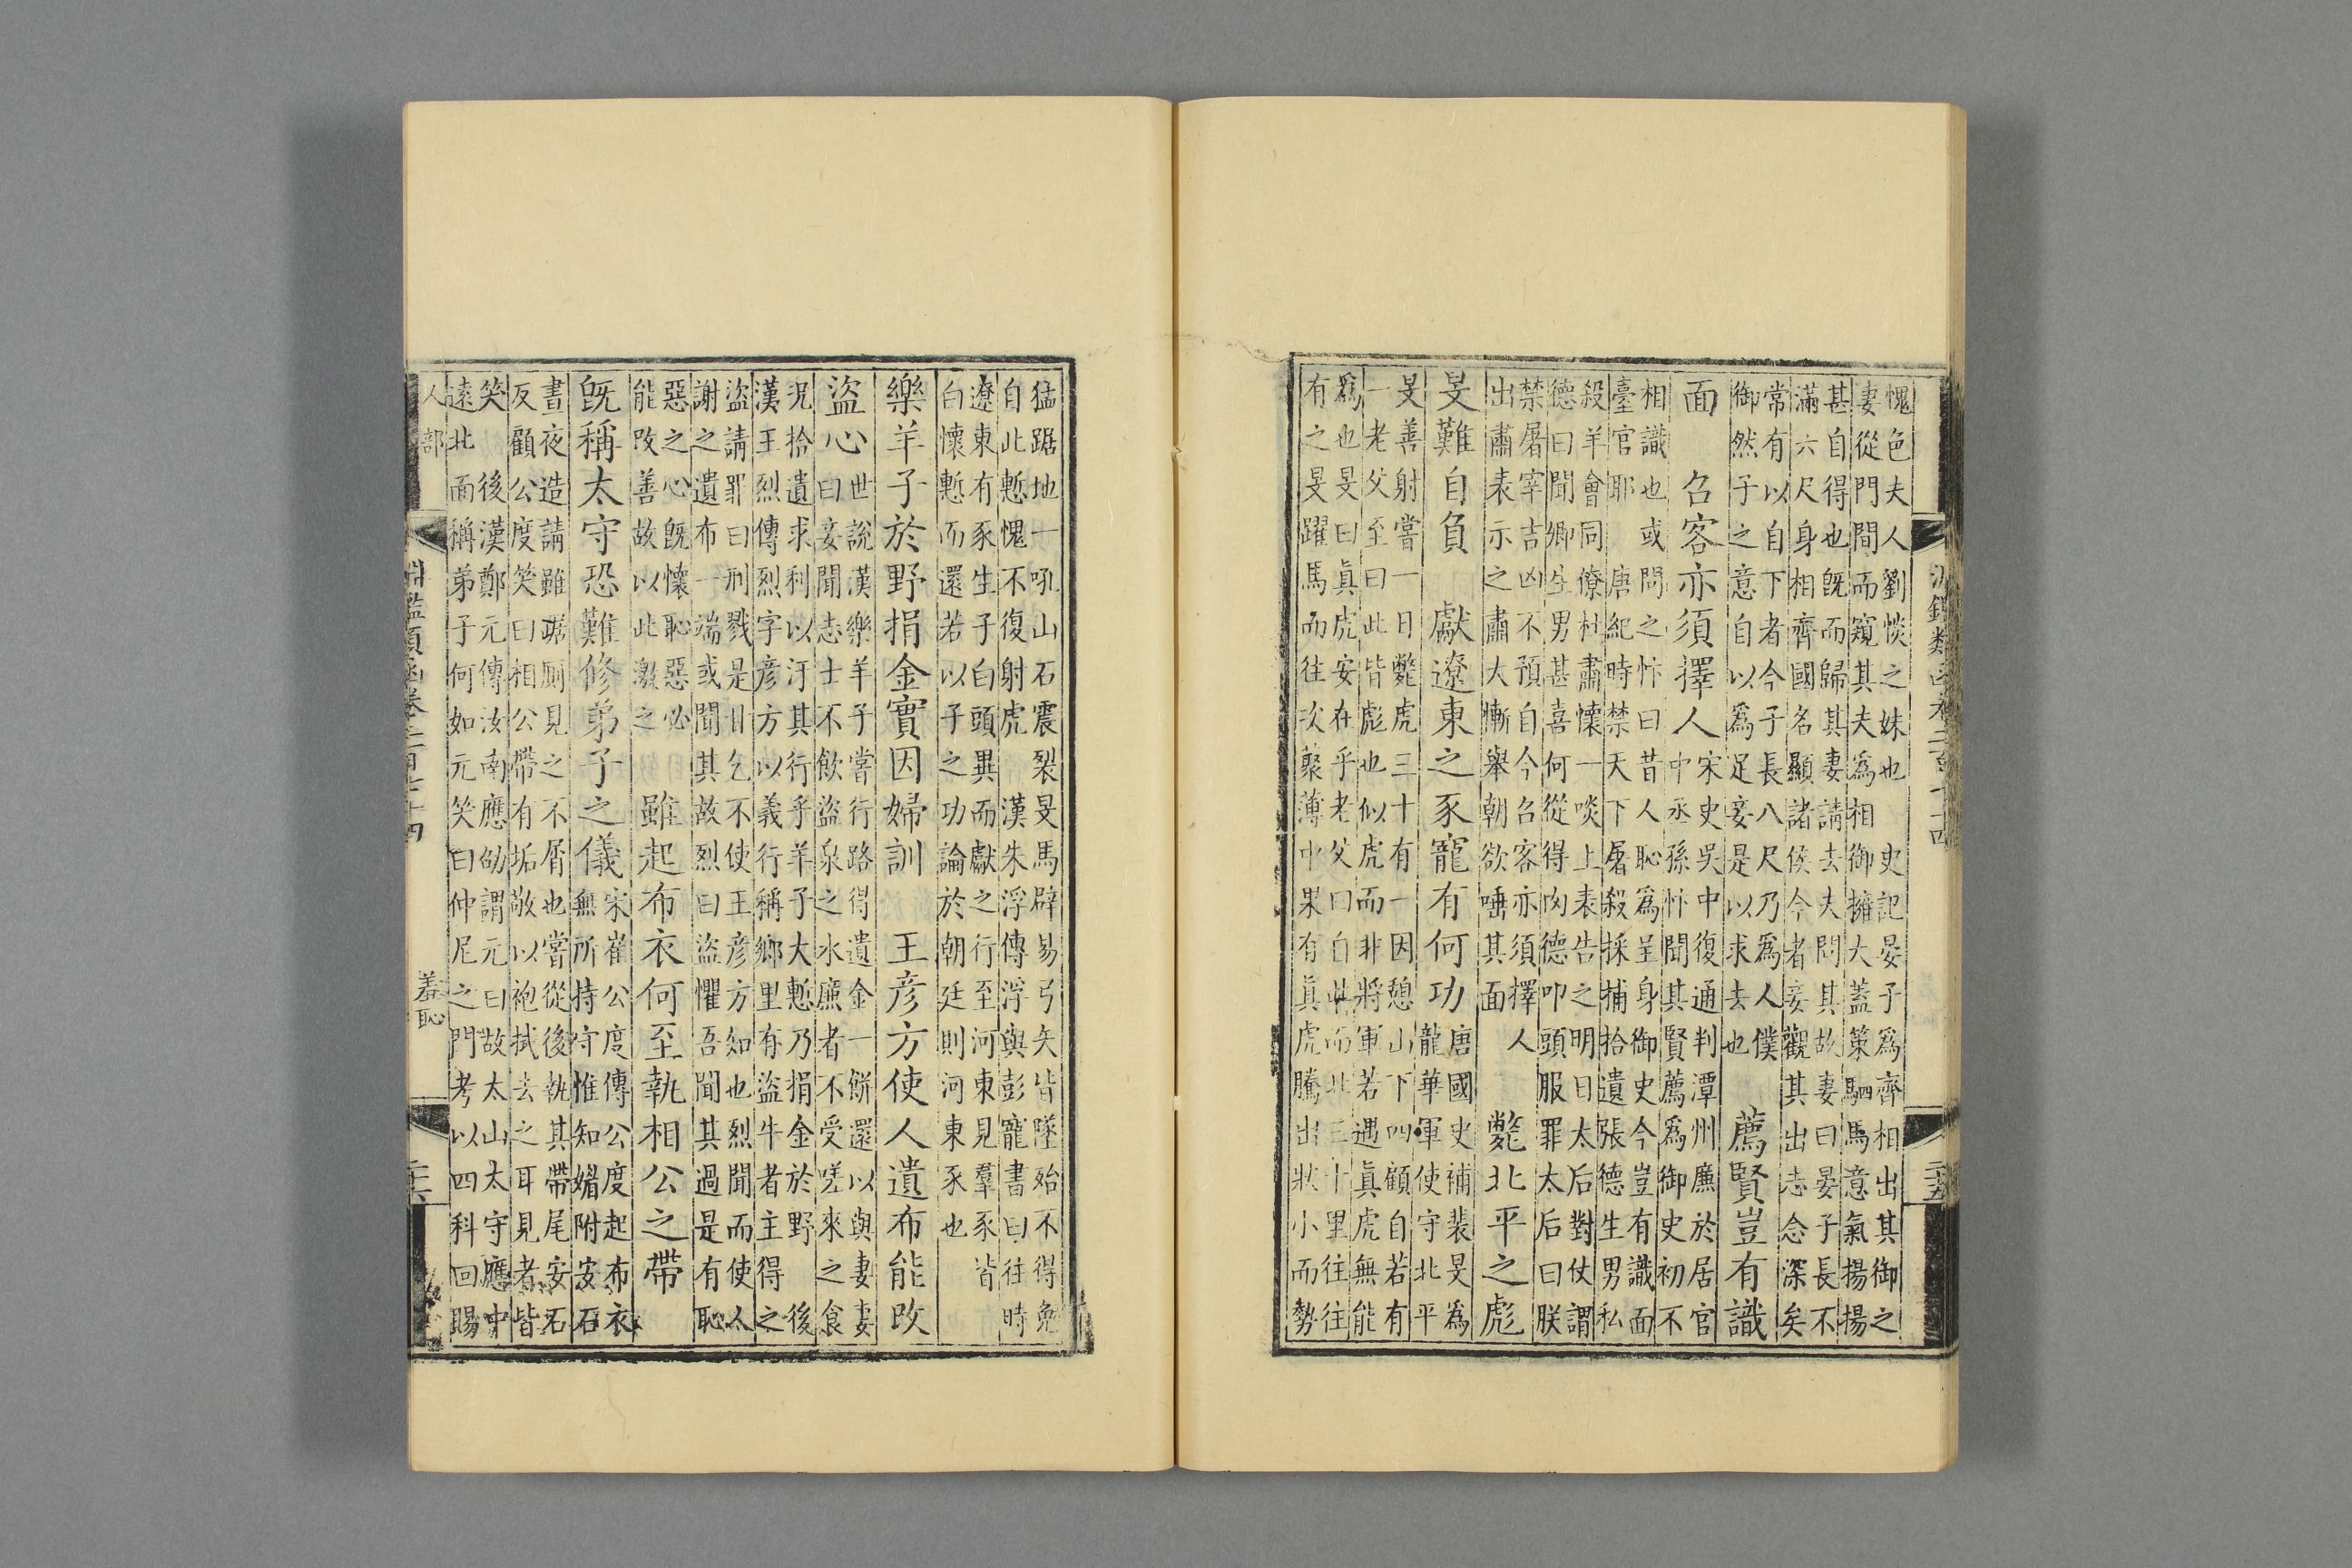 淵鑑類函卷二百七十四　二十五
愧色夫人劉惔之妹也　史記晏子爲齊相出其御之
妻從門間而窺其夫爲相御擁大蓋策駟馬意氣揚揚
甚自得也旣而歸其妻請去夫問其故妻曰晏子長不
滿六尺身相齊國名顯諸侯今者妾觀其出志念深矣
常有以自下者今子長八尺乃爲人僕
御然子之意自以爲足妾是以求去也
薦賢豈有識
面　召客亦須擇人
宋史吳中復通判潭州廉於居官
中丞孫忭聞其賢薦爲御史初不
相識也或問之忭曰昔人恥爲呈身御史今豈有識面
臺官耶　唐紀時禁天下屠殺採捕拾遺張德生男私
殺羊會同僚杜肅懷一啖上表告之明日太后對仗謂
德曰聞卿生男甚喜何從得肉德叩頭服罪太后曰朕
禁屠宰吉凶不預自今召客亦須擇人
出肅表示之肅大慚舉朝欲唾其面
斃北平之彪
旻難自負　獻遼東之豕寵有何功
唐國史補裴旻爲
龍華軍使守北平
旻善射嘗一日斃虎三十有一因憩山下四顧自若有
一老父至曰此皆彪也似虎而非將軍若遇眞虎無能
爲也旻曰眞虎安在乎老父曰自此而北三十里往往
有之旻躍馬而往次藂薄中果有眞虎騰出狀小而勢
猛踞地一吼山石震裂旻馬辟易弓矢皆墜殆不得免
自此慙愧不復射虎　漢朱浮傳浮與彭寵書曰往時
遼東有豕生子白頭異而獻之行至河東見羣豕皆
白懷慙而還若以子之功論於朝廷則河東豕也
樂羊子於野捐金實因婦訓　王彦方使人遺布能改
盜心
世說漢樂羊子嘗行路得遺金一餅還以與妻妻
曰妾聞志士不飲盜泉之水廉者不受嗟來之食
況拾遺求利以汙其行乎羊子大慙乃捐金於野　後
漢王烈傳烈字彦方以義行稱鄉里有盜牛者主得之
盜請罪曰刑戮是甘乞不使王彦方知也烈聞而使人
謝之遺布一端或聞其故烈曰盜懼吾聞其過是有恥
惡之心旣懷恥惡必
能改善故以此激之
雖起布衣何至執相公之帶
旣稱太守恐難修弟子之儀
宋崔公度傳公度起布衣
無所持守惟知媚附安石
晝夜造請雖踞厠見之不屑也嘗從後執其帶尾安石
反顧公度笑曰相公帶有垢敬以袍拭去之耳見者皆
笑　後漢鄭元傳汝南應劭謂元曰故太山太守應中
遠北面稱弟子何如元笑曰仲尼之門考以四科回賜
人部　淵鑑類函卷二百七十四　羞恥　二十六